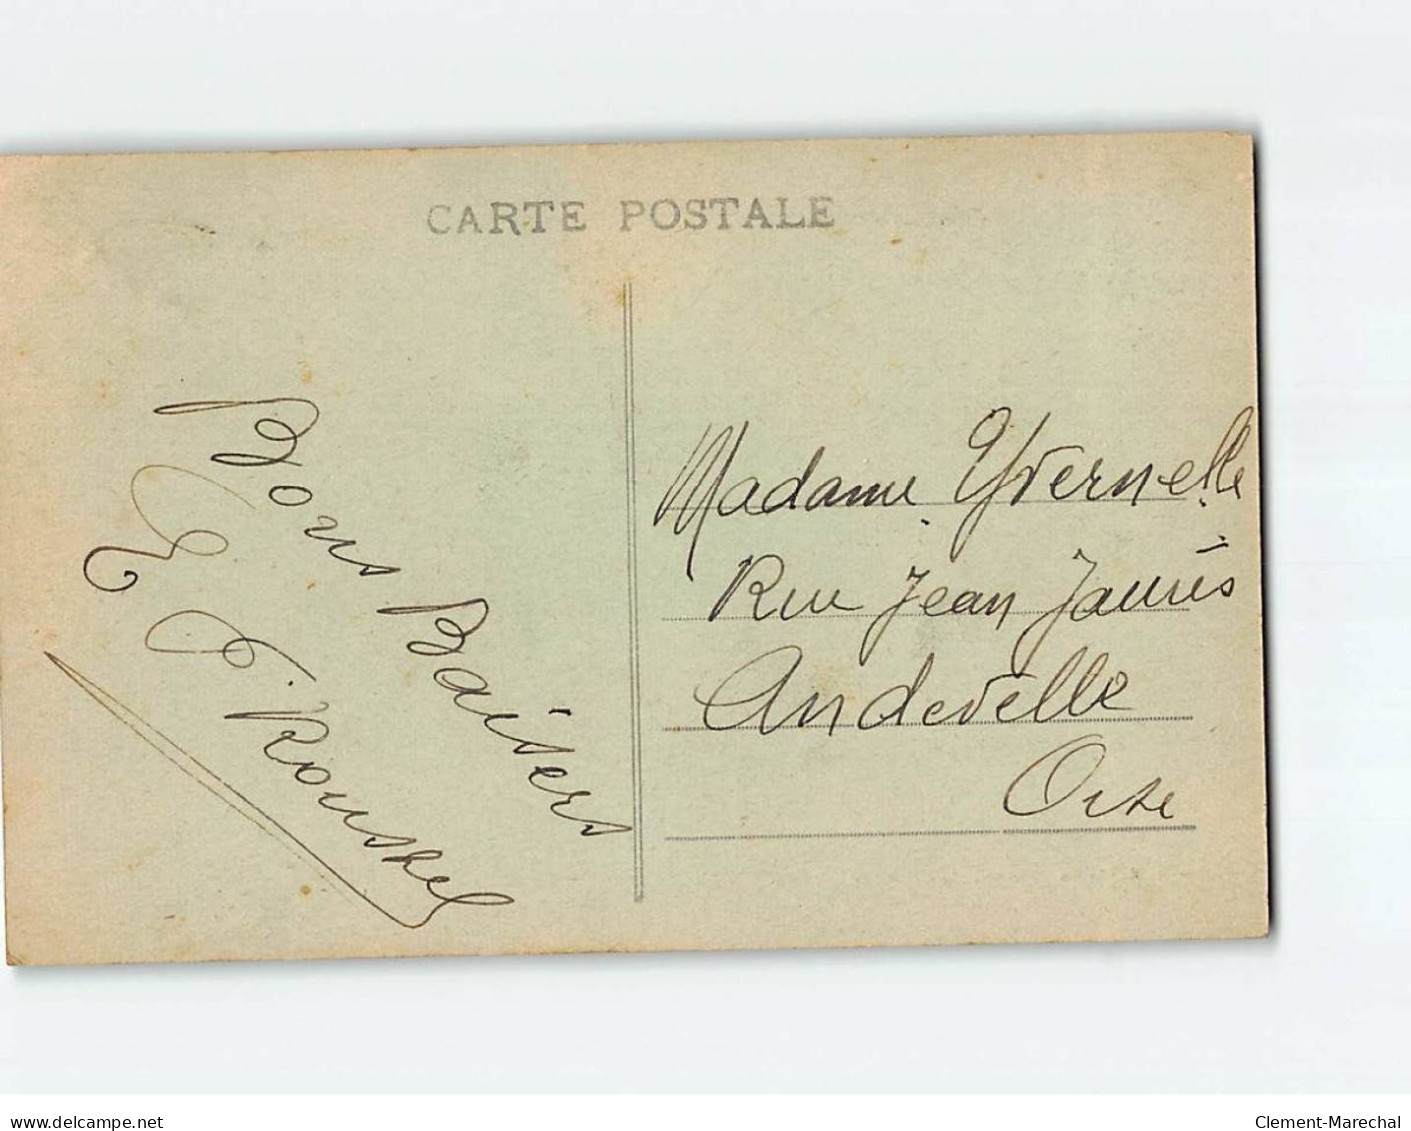 CARTE POSTALE
Bons Baisers
E. Rouskel
Madame Yvernelle
Rue Jean Jaurès
Andeville
Oise
delcampe.net
Clement-Marechal